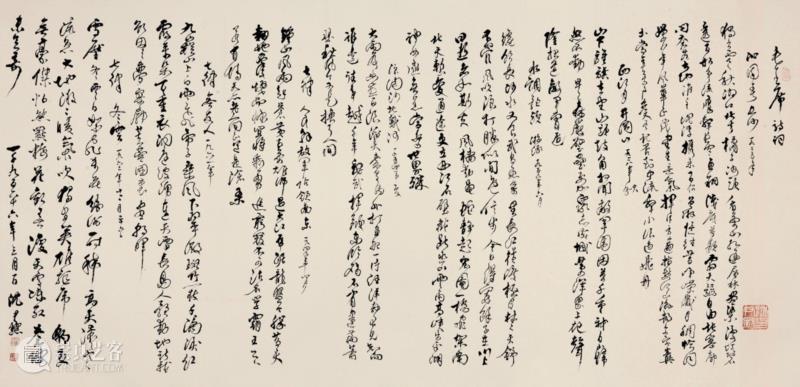 毛主席诗词
沁园春 长沙 一九二五年
独立寒秋湘江北去橘子洲头看万山红遍层林尽染漫江碧
透百舸争流鹰击长空鱼翔浅底万类霜天竞自由怅寥廓
问苍茫大地谁主沉浮携来百侣曾游忆往昔峥嵘岁月稠恰同
学少年风华正茂书生意气挥斥方遒指点江山激扬文字粪
土当年万户侯曾记否到中流击水浪遏飞舟
西江月 井冈山 一九二八年秋
山下旌旗在望山头鼓角相闻敌军围困万千重我自岿
然不动早已森严壁垒更加众志成城黄洋界上炮声
隆报道敌军宵遁
水调歌头 游泳 一九五六年六月
才饮长沙水又食武昌鱼万里长江横渡极目楚天舒
不管风吹浪打胜似闲庭信步今日得宽馀子在川上
曰逝者如斯夫风樯动龟蛇静起宏图一桥飞架南
北天堑变通途更立西江石壁截断巫山云雨高峡出平湖
神女应无恙当惊世界殊
浪淘沙 北戴河
大雨落幽燕白浪滔天秦皇岛外打鱼船一片汪洋都不见知
向谁边往事越千年魏武挥鞭东临碣石有遗篇萧
瑟秋风今又是换了人间
七律 人民解放军占领南京
钟山风雨起苍黄百万雄师过大江虎踞龙盘今胜昔天
翻地覆慨而慷宜将剩勇追穷寇不可沽名学霸王天
若有情天亦老人间正道是沧桑
七律 答友人 一九六一年
九嶷山上白云飞帝子乘风下翠微斑竹一枝千滴泪红
霞万朵百重衣洞庭波涌连天雪长岛人歌动地诗我
欲因之梦寥廓芙蓉国里尽朝晖
七律 冬云
雪压冬云白絮飞万花纷谢一时稀高天滚滚寒
流急大地微微暖气吹独有英雄驱虎豹更
无豪杰怕熊罴梅花欢喜漫天雪冻死苍蝇
未足奇
沈尹默